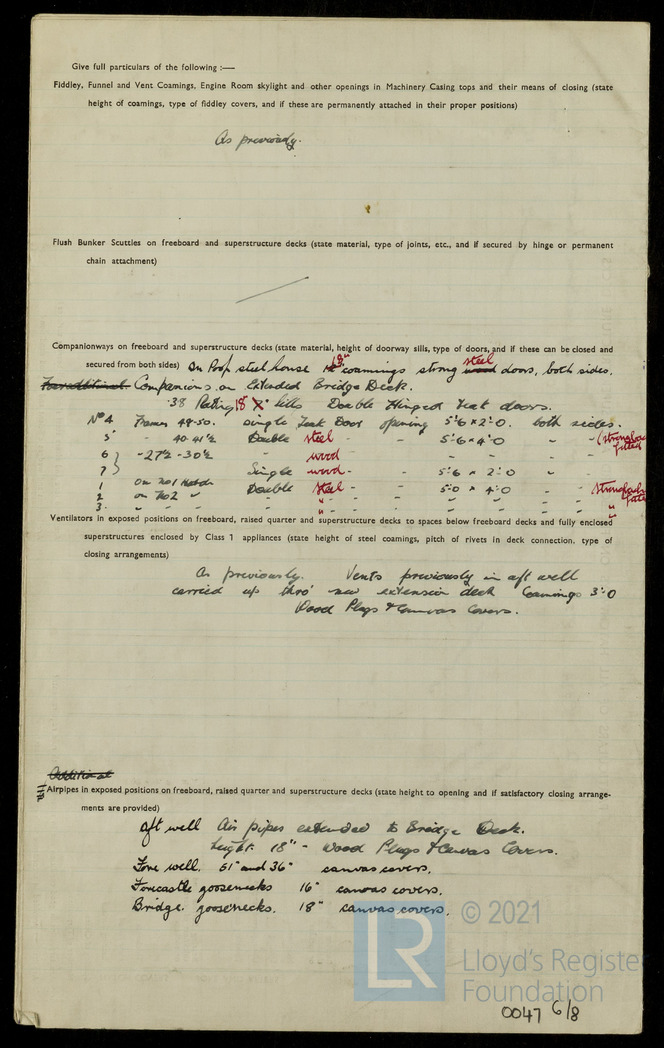 Give full particulars of the following :—
Fiddley, Funnel and Vent Coamings, Engine Room skylight and other openings in Machinery Casing tops and their means of closing (state
height of coamings, type of fiddley covers, and if these are permanently attached in their proper positions)
As previously.
Flush Bunker Scuttles on freeboard and superstructure decks (state material, type of joints, etc., and if secured by hinge or permanent
chain attachment)
Companionways on freeboard and superstructure decks (state material, height of doorway sills, type of doors, and if these can be closed and
secured from both sides) On Poop steel house 18" coamings strong steel doors, both sides.
Companions on Extended Bridge Deck.
38 18" sills Double Hinged Teak doors.
No 4 Frames 48-50. Single Teak Door opening 5'6 x 2'0. both sides.
5 " 40-41½ Double steel - 5'6 x 4'0 " - (strongbacks fitted
6 } -27½ -30½ " wood - "
7 } Single wood - 5'6 x 2'0 "
1 on No1 Hatch Double Steel - 5'0 x 4'0 " - strongbacks fitted
2 on No2 " " " - " " " "
3. " " " " " - " " " "
Ventilators in exposed positions on freeboard, raised quarter and superstructure decks to spaces below freeboard decks and fully enclosed
superstructures enclosed by Class 1 appliances (state height of steel coamings, pitch of rivets in deck connection, type of
closing arrangements)
As previously. Vents previously in aft well
carried up thro' new extension deck Coamings 3'0
Wood Plugs & Canvas Covers.
Additional
Airpipes in exposed positions on freeboard, raised quarter and superstructure decks (state height to opening and if satisfactory closing arrange-
ments are provided)
Aft well Air pipes extended to Bridge Deck.
height 18" - Wood Plugs & Canvas Covers.
Fore well. 51" and 36" canvas covers.
Forecastle goosenecks 16" canvas covers.
Bridge. goosenecks. 18" canvas covers.
LR
© 2021
Lloyd's Register
Foundation
0047 6/8